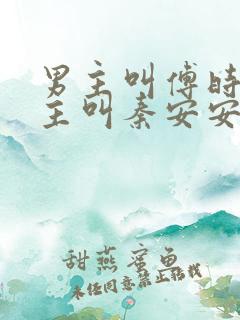 男主叫傅时
主叫秦安安
甜燕蜜鱼
未经同意禁止搬我